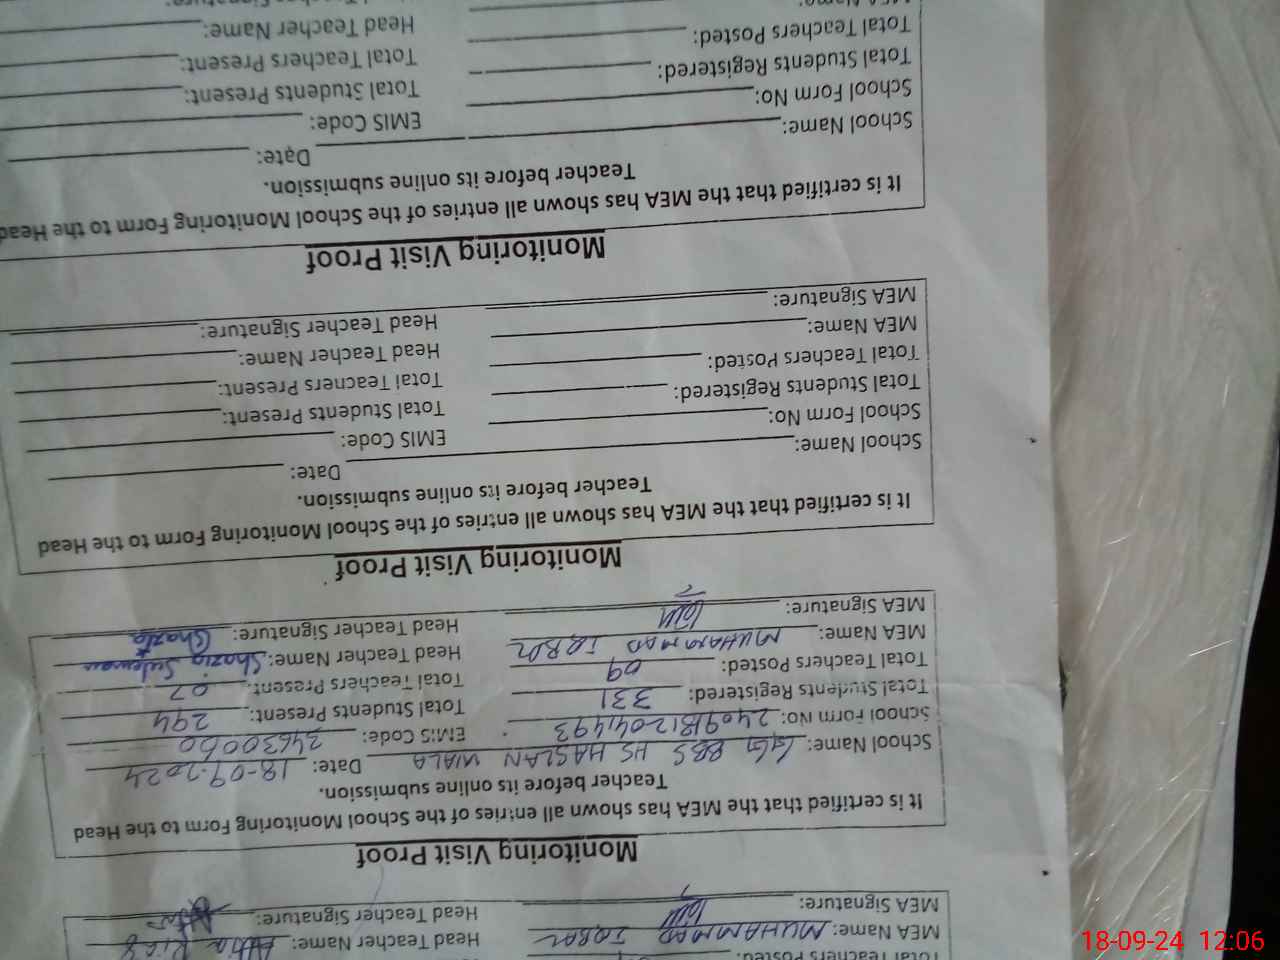 MEA Name: MUHAMMAD IQBAL Head Teacher Name:
MEA Signature: Head Teacher Signature:
Monitoring Visit Proof
It is certified that the MEA has shown all entries of the School Monitoring Form to the Head
Teacher before its online submission.
School Name: HS HASLAN WALA Date: 18-09-2024
School Form No: EMIS Code: 34630060
Total Students Registered: 331 Total Students Present: 294
Total Teachers Posted: 09 Total Teachers Present: 07
MEA Name: MUHAMMAD IQBAL Head Teacher Name: Shazia Suleman
MEA Signature: Head Teacher Signature: Shazia
Monitoring Visit Proof
It is certified that the MEA has shown all entries of the School Monitoring Form to the Head
Teacher before its online submission.
School Name: Date:
School Form No: EMIS Code:
Total Students Registered: Total Students Present:
Total Teachers Posted: Total Teachers Present:
MEA Name: Head Teacher Name:
MEA Signature: Head Teacher Signature:
Monitoring Visit Proof
It is certified that the MEA has shown all entries of the School Monitoring Form to the Head
Teacher before its online submission.
School Name: Date:
School Form No: EMIS Code:
Total Students Registered: Total Students Present:
Total Teachers Posted: Total Teachers Present:
Head Teacher Name:
18-09-24 12:06